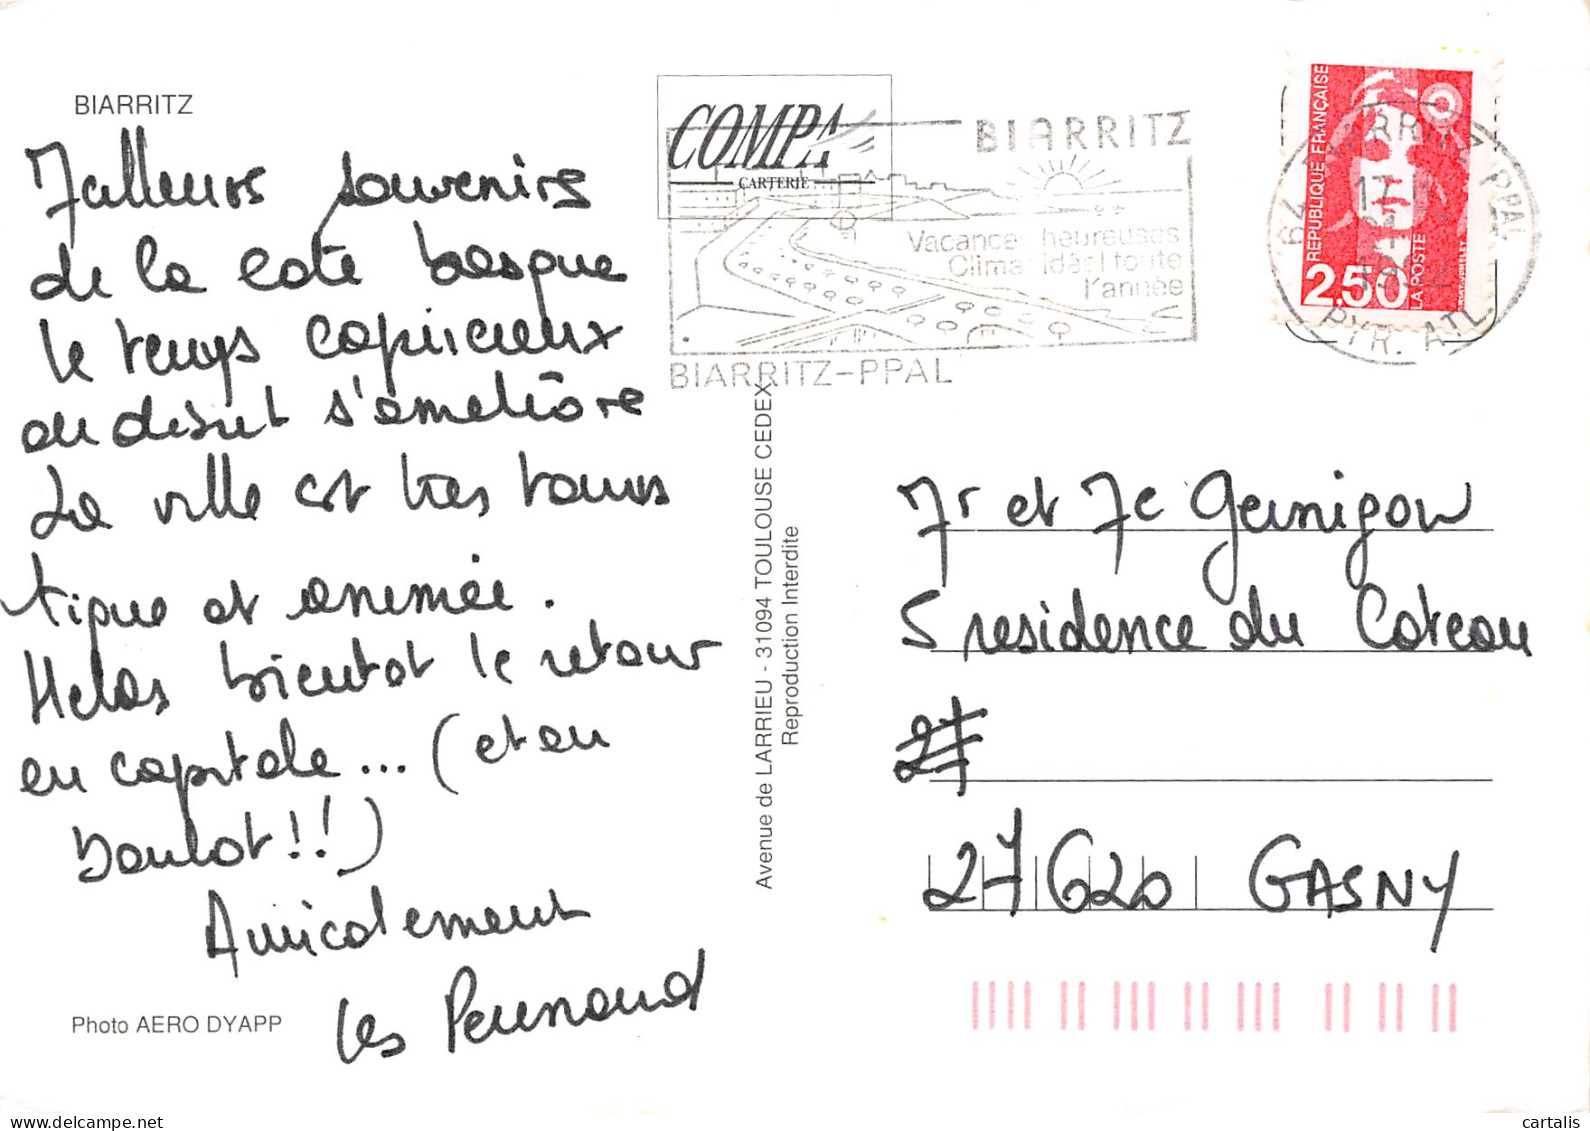 BIARRITZ
Meilleurs souvenirs
de la cote basque
le temps capricieux
au début s'améliore
La ville est tres touris
tique et animée.
Helas bientot le retour
en capitale... (et au
boulot!!)
Amicalement
les Pernaud
Photo AERO DYAPP
COMPA
CARTERIE
BIARRITZ
Vacances heureuses
Climat idéal toute
l'année
BIARRITZ-PPAL
Avenue de LARRIEU - 31094 TOULOUSE CEDEX
Reproduction Interdite
REPUBLIQUE FRANÇAISE
2,50
LA POSTE
64 BIARRITZ PPAL
17
PYR. ATL
Mr et Me
5 residence du Coteau
27
27620 GASNY
cartalis
delcampe.net